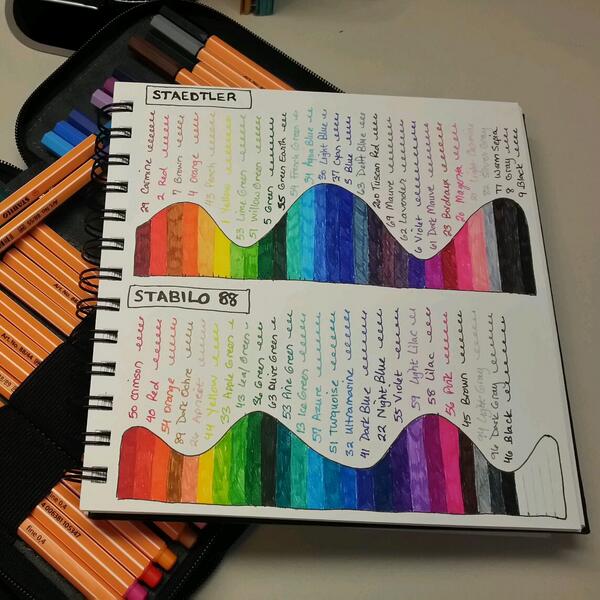 STAEDTLER
29 Carmine
2 Red
7 Brown
4 Orange
43 Peach
1 Yellow
53 Lime Green
51 Willow Green
5 Green
55 Green Earth
54 French Green
34 Aqua Blue
30 Light Blue
37 Cyan
3 Blue
63 Delft Blue
20 Tuscan Red
69 Mauve
62 Lavender
6 Violet
61 Dark Mauve
23 Bordeaux
20 Magenta
21 Light Carmine
82 Silver Gray
77 Warm Sepia
8 Gray
9 Black
STABILO 88
50 Crimson
40 Red
54 Orange
89 Dark Ochre
26 Apricot
44 Yellow
33 Apple Green
43 Leaf Green
36 Green
63 Olive Green
53 Pine Green
13 Ice Green
57 Azure
51 Turquoise
32 Ultramarine
41 Dark Blue
22 Night Blue
55 Violet
59 Light Lilac
58 Lilac
56 Pink
45 Brown
94 Light Gray
96 Dark Gray
46 Black
STABILO
fine 0,4
fine 0,4
4 006381 105347